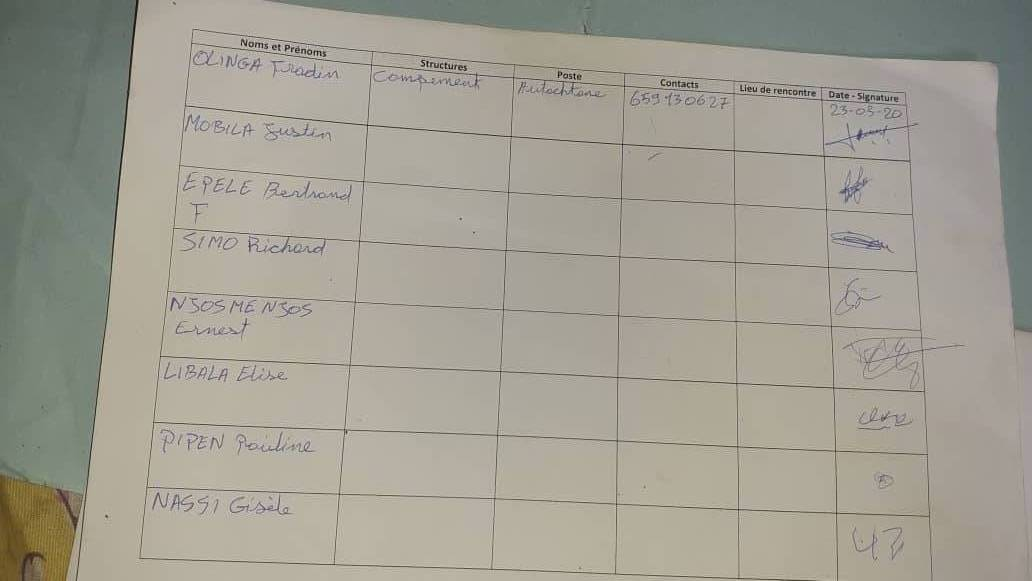 Noms et Prénoms Structures Poste Contacts Lieu de rencontre Date - Signature
OLINGA Fradin Campement Autochtone 659130627 23-03-20
MOBILA Justin
EPELE Bertrand
F
SIMO Richard
NJOSMENJOS
Ernest
LIBALA Elise
PIPEN Pauline
NASSI Gisèle